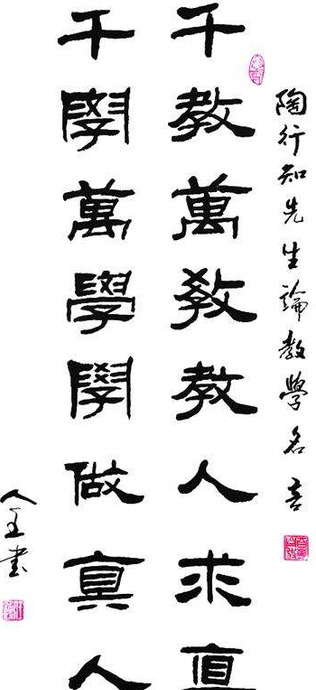 陶行知先生論教學名言
千教萬教教人求真
千學萬學學做真人
人全書